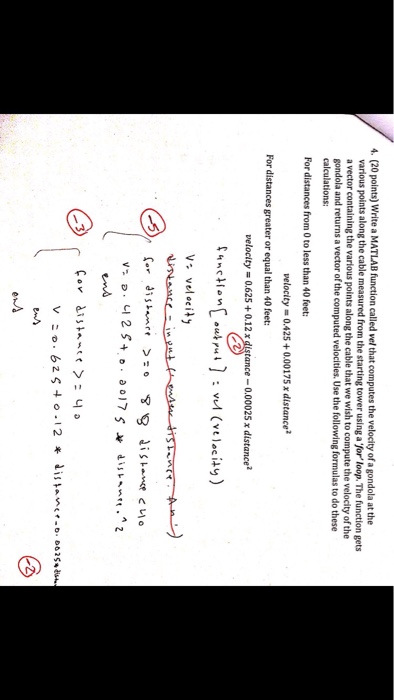 4. (20 points) Write a MATLAB function called vel that computes the velocity of a gondola at the
various points along the cable measured from the starting tower using a 'for' loop. The function gets
a vector containing the various points along the cable that we wish to compute the velocity of the
gondola and returns a vector of the computed velocities. Use the following formulas to do these
calculations:
For distances from 0 to less than 40 feet:
velocity = 0.425 + 0.00175 x distance²
For distances greater or equal than 40 feet:
velocity = 0.625 + 0.12 x distance − 0.00025 x distance²
-2
function [output] = vel (velocity)
V = velocity
distance = input ('enter distance:
-5
for distance >= 0 && distance < 40
V = 0.425 + 0.00175 * distance.^2
end
-3
for distance >= 40
V = 0.625 + 0.12 * distance - 0.0025 *
end
end
-2